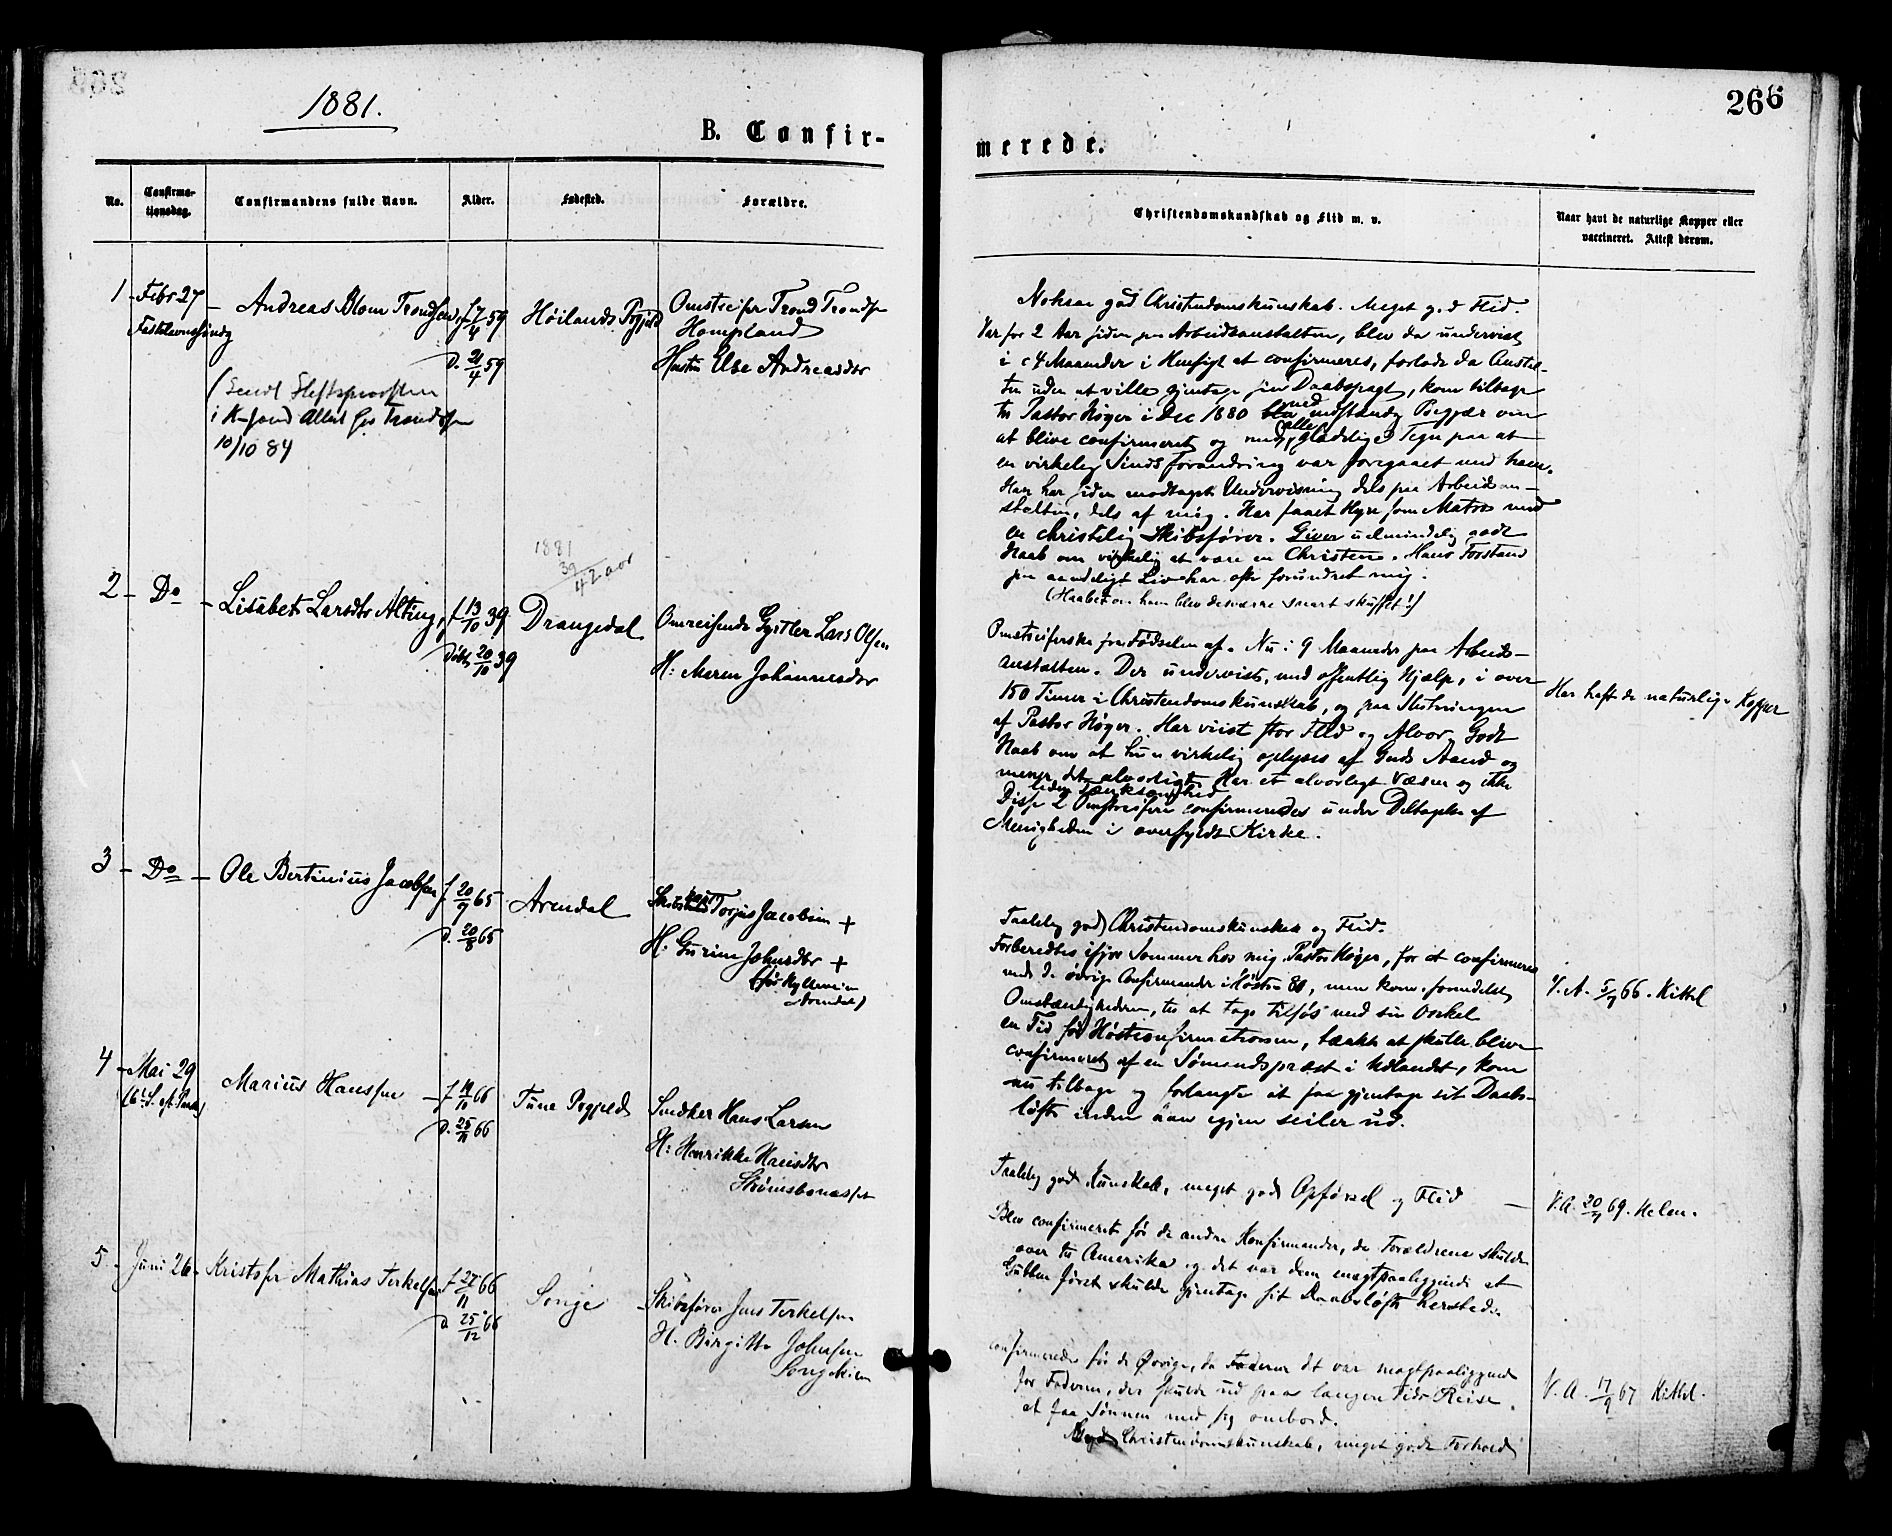 1881.
266
B. Confir-
merede.
No.
Confirma-
tionsdag.
Confirmandens fulde Navn.
Alder.
Fødested.
Forældre.
Christendomskundskab og Flid m. v.
Naar havt de naturlige Kopper eller
vaccineret. Attest derom.
1 - Febr 27 - Andreas Blom Trondsen f 7/4 59 Høilands Prgjeld Omstreifer Trond Trondsen
Hompland
d. 21/4 59
Hustru Else Andreasdtr
i K-sand Attest for Trondsen
10/10 84
Noksaa god Christendomskunskab. Meget god Flid.
Var for 2 Aar siden paa Arbeidsanstalten, blev da undervist
i c 4 Maaneder i Hensigt at confirmeres, forlod da Anstal-
ten uden at ville gjentage sin Daabspagt, kom tilbage
til Pastor Høyer i Dec 1880 med indstændig Begjær om
at blive confirmeret og med alle glædelige Tegn paa at
en virkelig Sindsforandring var foregaaet med ham.
Han har siden modtaget Undervisning dels paa Arbeidsan-
stalten, dels af mig. Har faaet Hyre som Matros med
en christelig Skibsfører. Giver udmindelig godt
Haab om virkelig at være en Christen. Hans Forstand
paa aandeligt Liv har ofte forundret mig.
(Haabet om ham blev desværre snart skuffet!)
1881
39
42 aar
2 - Do - Lisabet Larsdtr Alting, f 13/10 39 Drangedal Omreisende Gjørtler Lars Olsen
Døbt 20/10 39
H: Maren Johannesdtr
Omstreiferske fra Fødselen af. Nu i 9 Maaneder paa Arbeids-
anstalten. Der undervist, med offentlig Hjælp, i over
150 Timer i Christendomskunskab, og paa Slutningen
af Pastor Høyer. Har viist stor Flid og Alvor. Godt
Haab om at hun virkelig oplyses af Guds Aand og
mener det alvorligt. Har et alvorligt Væsen og ikke
liden Tænksomhed.
Disse 2 Omstreifere confirmeredes under Deltagelse af
Menigheden i overfyldt Kirke.
Har haft de naturlige Kopper
3 - Do - Ole Bertinius Jacobsen f 20/7 65 Arendal Skibskapt Torjus Jacobsen +
d. 20/8 65
H. Gurine Johnsdtr +
Arendal)
Taalelig god Christendomskunskab og Flid.
Forberedtes ifjor Sommer hos mig, Pastor Høyer, for at confirmeres
med de øvrige Confirmander i Høsten 80, men kom, formedelst
Omstændighederne, til at tage tilsjøs med sin Onkel
en Tid før Høstconfirmationen, tænkte at skulle blive
confirmeret af en Sømandspræst i Udlandet, kom
nu tilbage og forlangte at faa gjentage sit Daabs-
løfte inden han igjen seiler ud.
V. A. 5/7 66. Kittel
4 - Mai 29 Marius Hanssen - f 19/10 66 Tune Prgjeld Snedker Hans Larsen
d. 25/11 66
H: Henrikke Hansdtr
Strømsbonesset
Taalelig god Kunskab, meget god Opførsel og Flid -
Blev confirmeret før de andre Konfirmander, da Forældrene skulde
over til Amerika og det var dem magtpaaliggende at
Gutten først skulde gjentage sit Daabsløfte hersteds.
V. A. 20/7 69. Helm.
5 - Juni 26 - Kristofer Mathias Terkelsen f 27/11 66 Songe Skibsfører Jens Terkelsen
d 25/12 66
H. Birgitte Johnsen
Songekleven
Confirmeredes før de Øvrige, da det var magtpaaliggende
for Faderen, der skulde ud paa langere Tids Reise,
at faa Sønnen med sig ombord.
Christendomskunskab, meget godt Forhold
V. A. 17/9 67 Kittel.